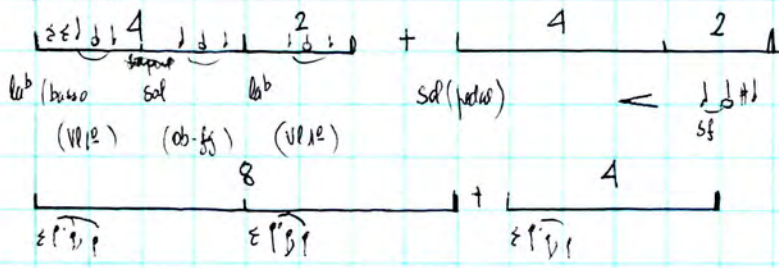 4 2 + 4 2
la b (basso sol la b sol (pedas) <
sf
(Vl 1º) (ob-fg) (Vl 1º)
8 + 4